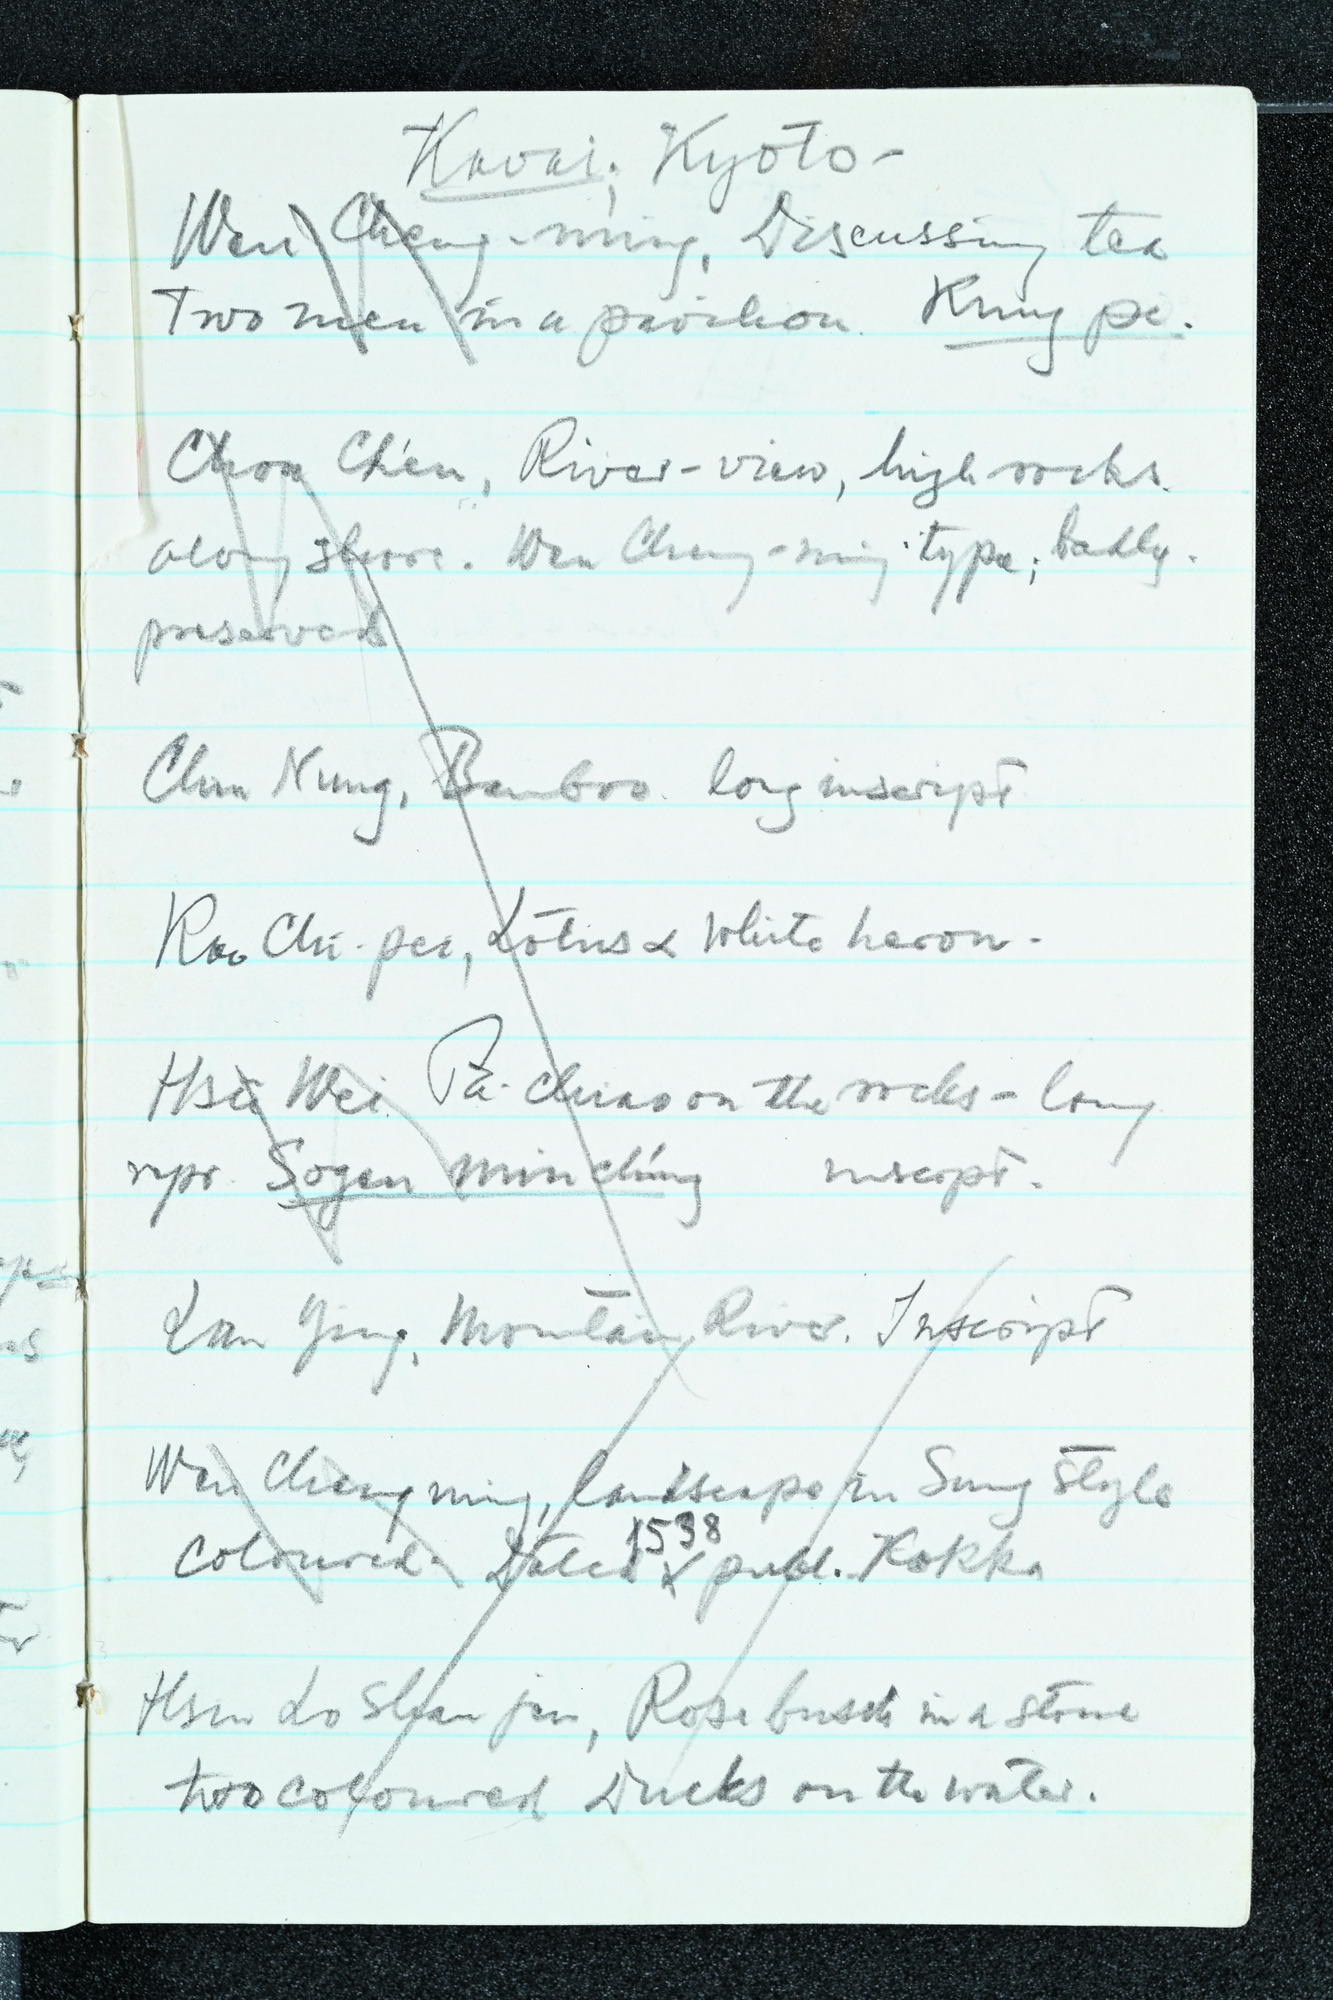 Kawai, Kyoto -
Wen Cheng-ming, Discussing tea
Two men in a pavilion. Kung pi.
Chou Ch'en, River-view, high rocks
along shore. Wen Cheng-ming type; badly
preserved
Chin Nung, Bamboo. long inscript
Kao Chi-pei, Lotus & white heron -
Hsü Wei. Pa-chiao on the rocks - long
repr. Sogen Min ching inscript.
Lan Ying, Mountain River. Inscript
Wen Cheng ming, landscape in Sung style
coloured. Dated 1538 & publ. Kokka
Hsin Lo Shan jen, Rose bush in a stone
two coloured Ducks on the water.